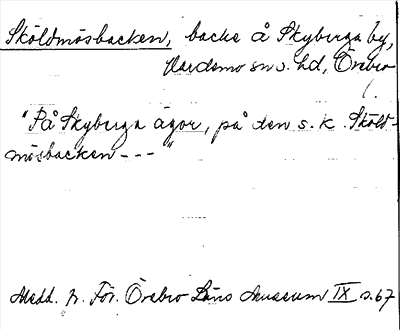 Sköldmösbacken, backe å Skyberga by,
Hardemo sn o. hd, Örebro
l.
"På Skyberga ägor, på den s. k. Sköld-
mösbacken - - - "
Medd. fr. För. Örebro Läns Museum IX s. 67